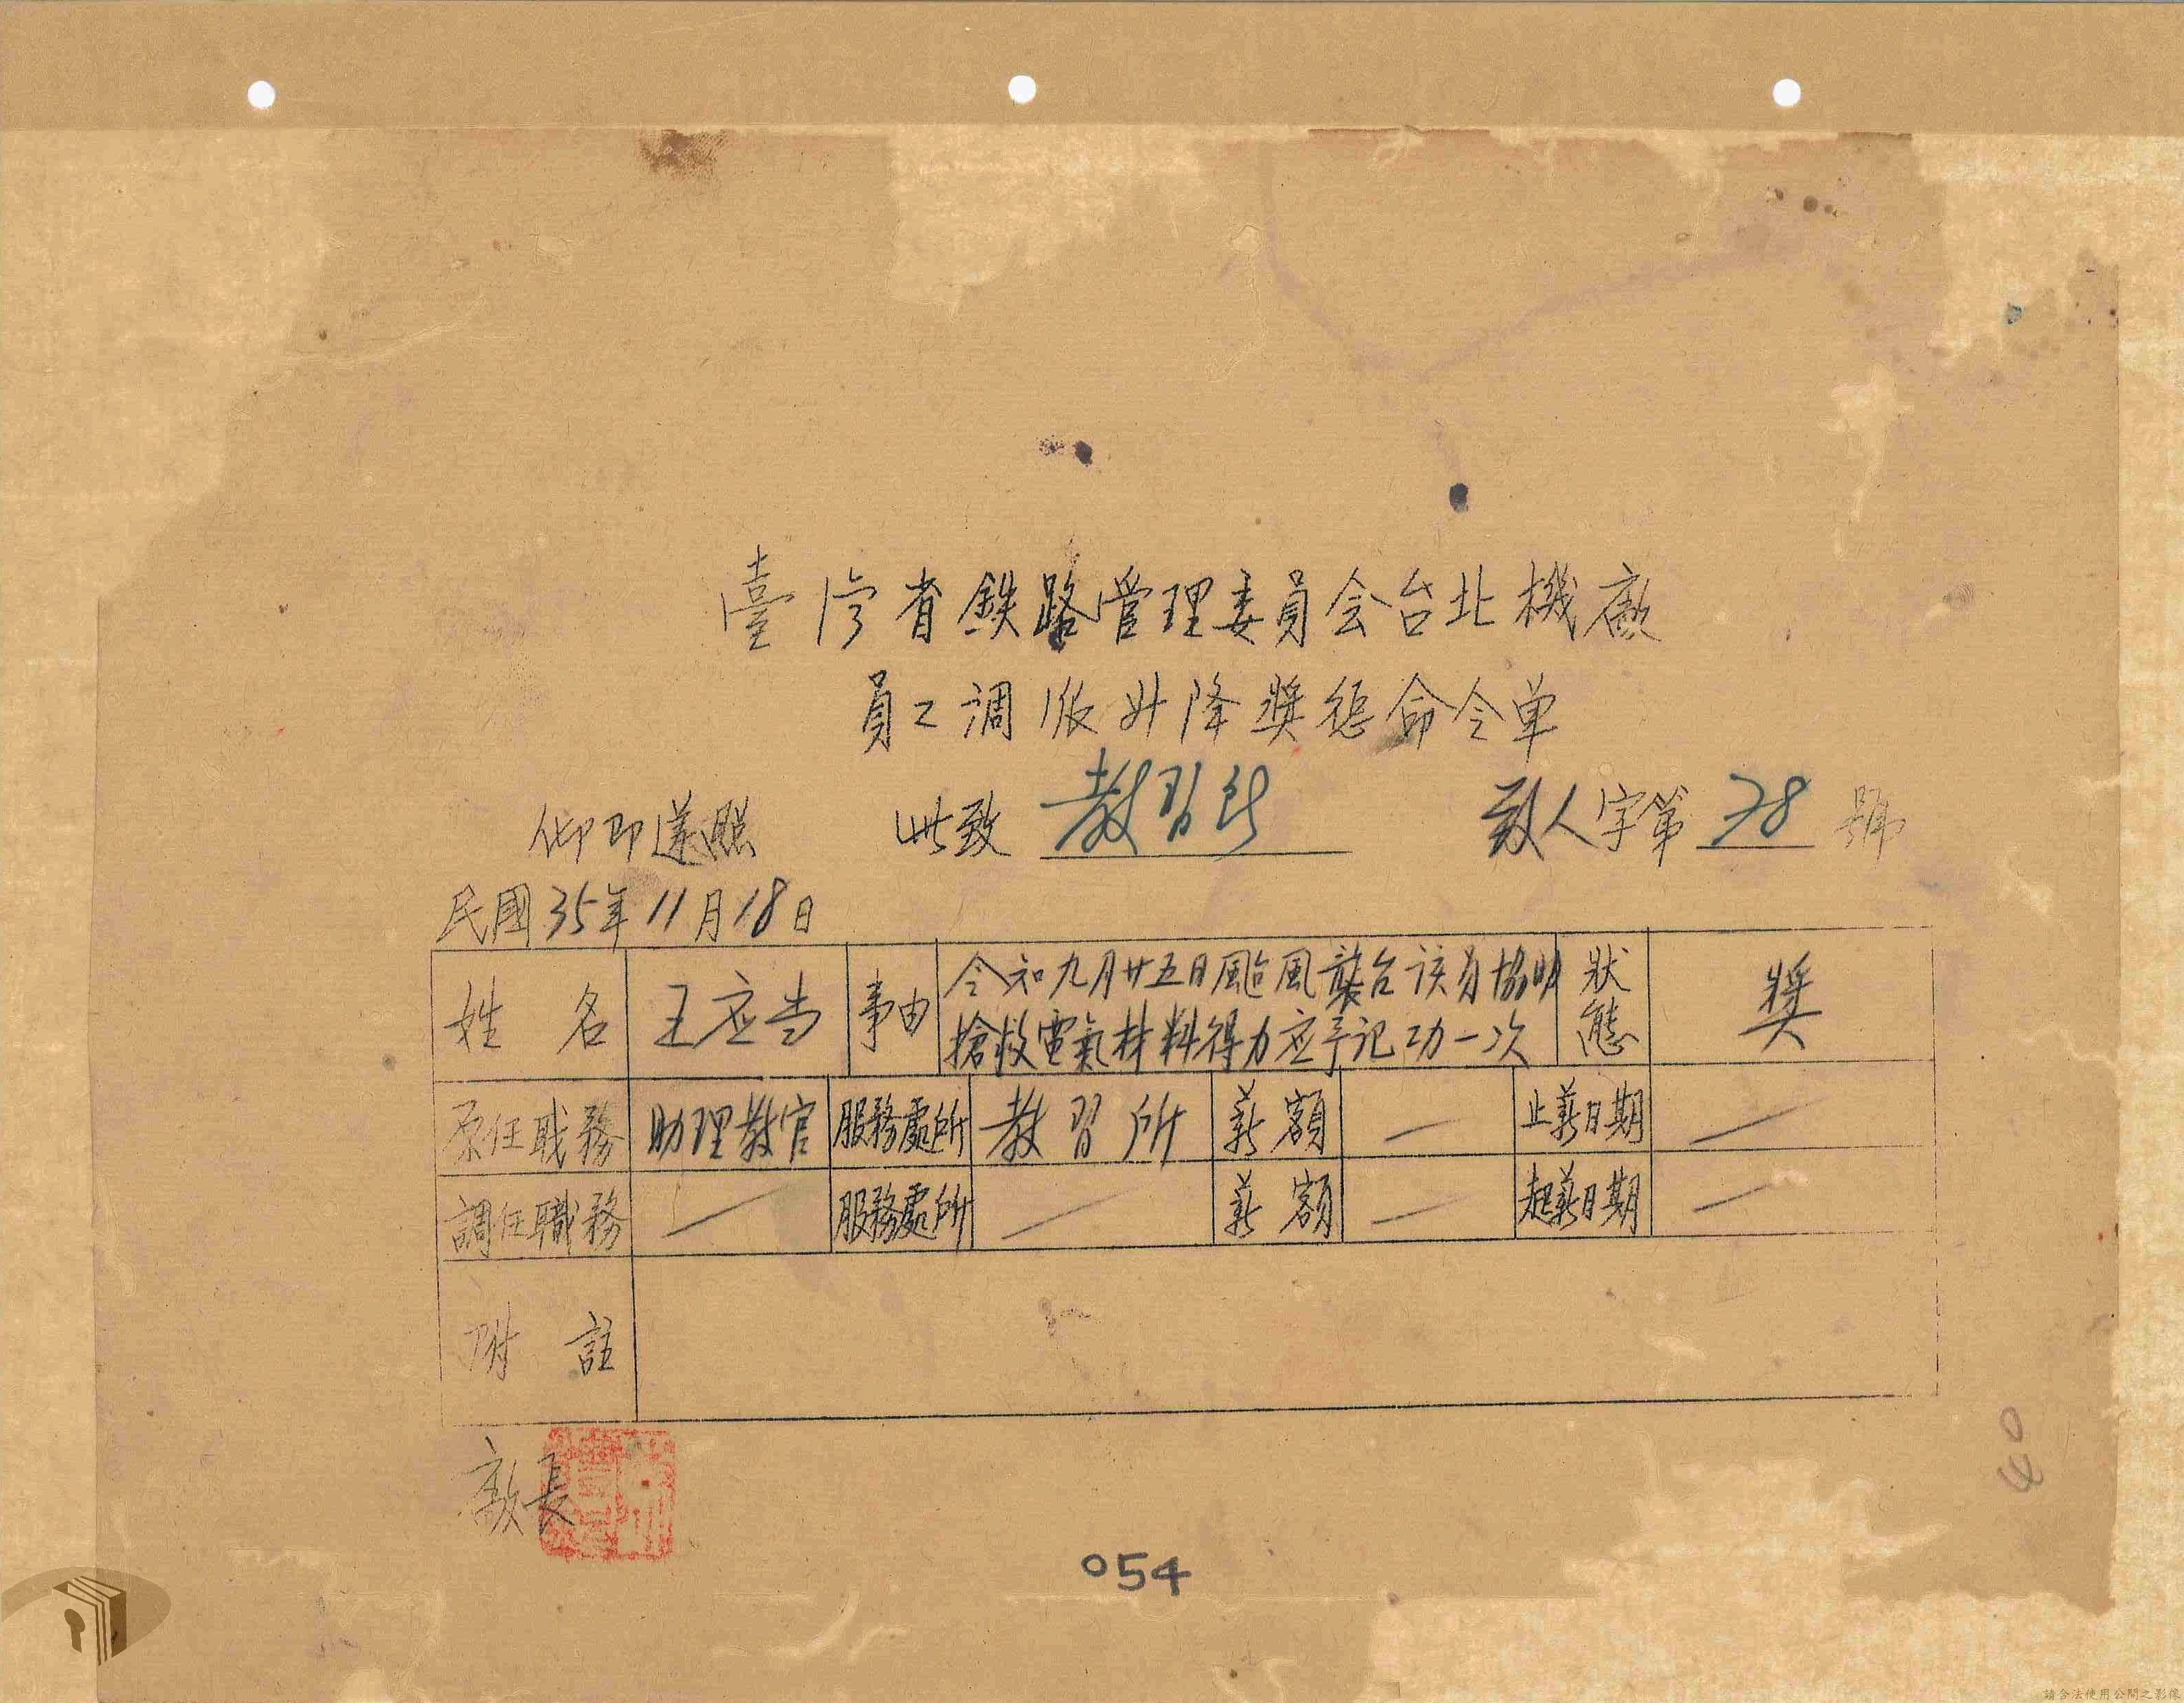 臺湾省鉄路管理委員会台北機廠
員工调派升降獎惩命令单
廠人字第 78 號
此致 教習所
仰即遵照
民國35年11月18日
姓名 王应当 事由 令知九月廿五日颱風襲台该員協助搶救電氣材料得力应予记功一次 狀態 獎
原任職務 助理教官 服務處所 教習所 薪額 — 止薪日期 —
調任職務 — 服務處所 — 薪額 — 起薪日期 —
附註
廠長
054
40
請合法使用公開之影像